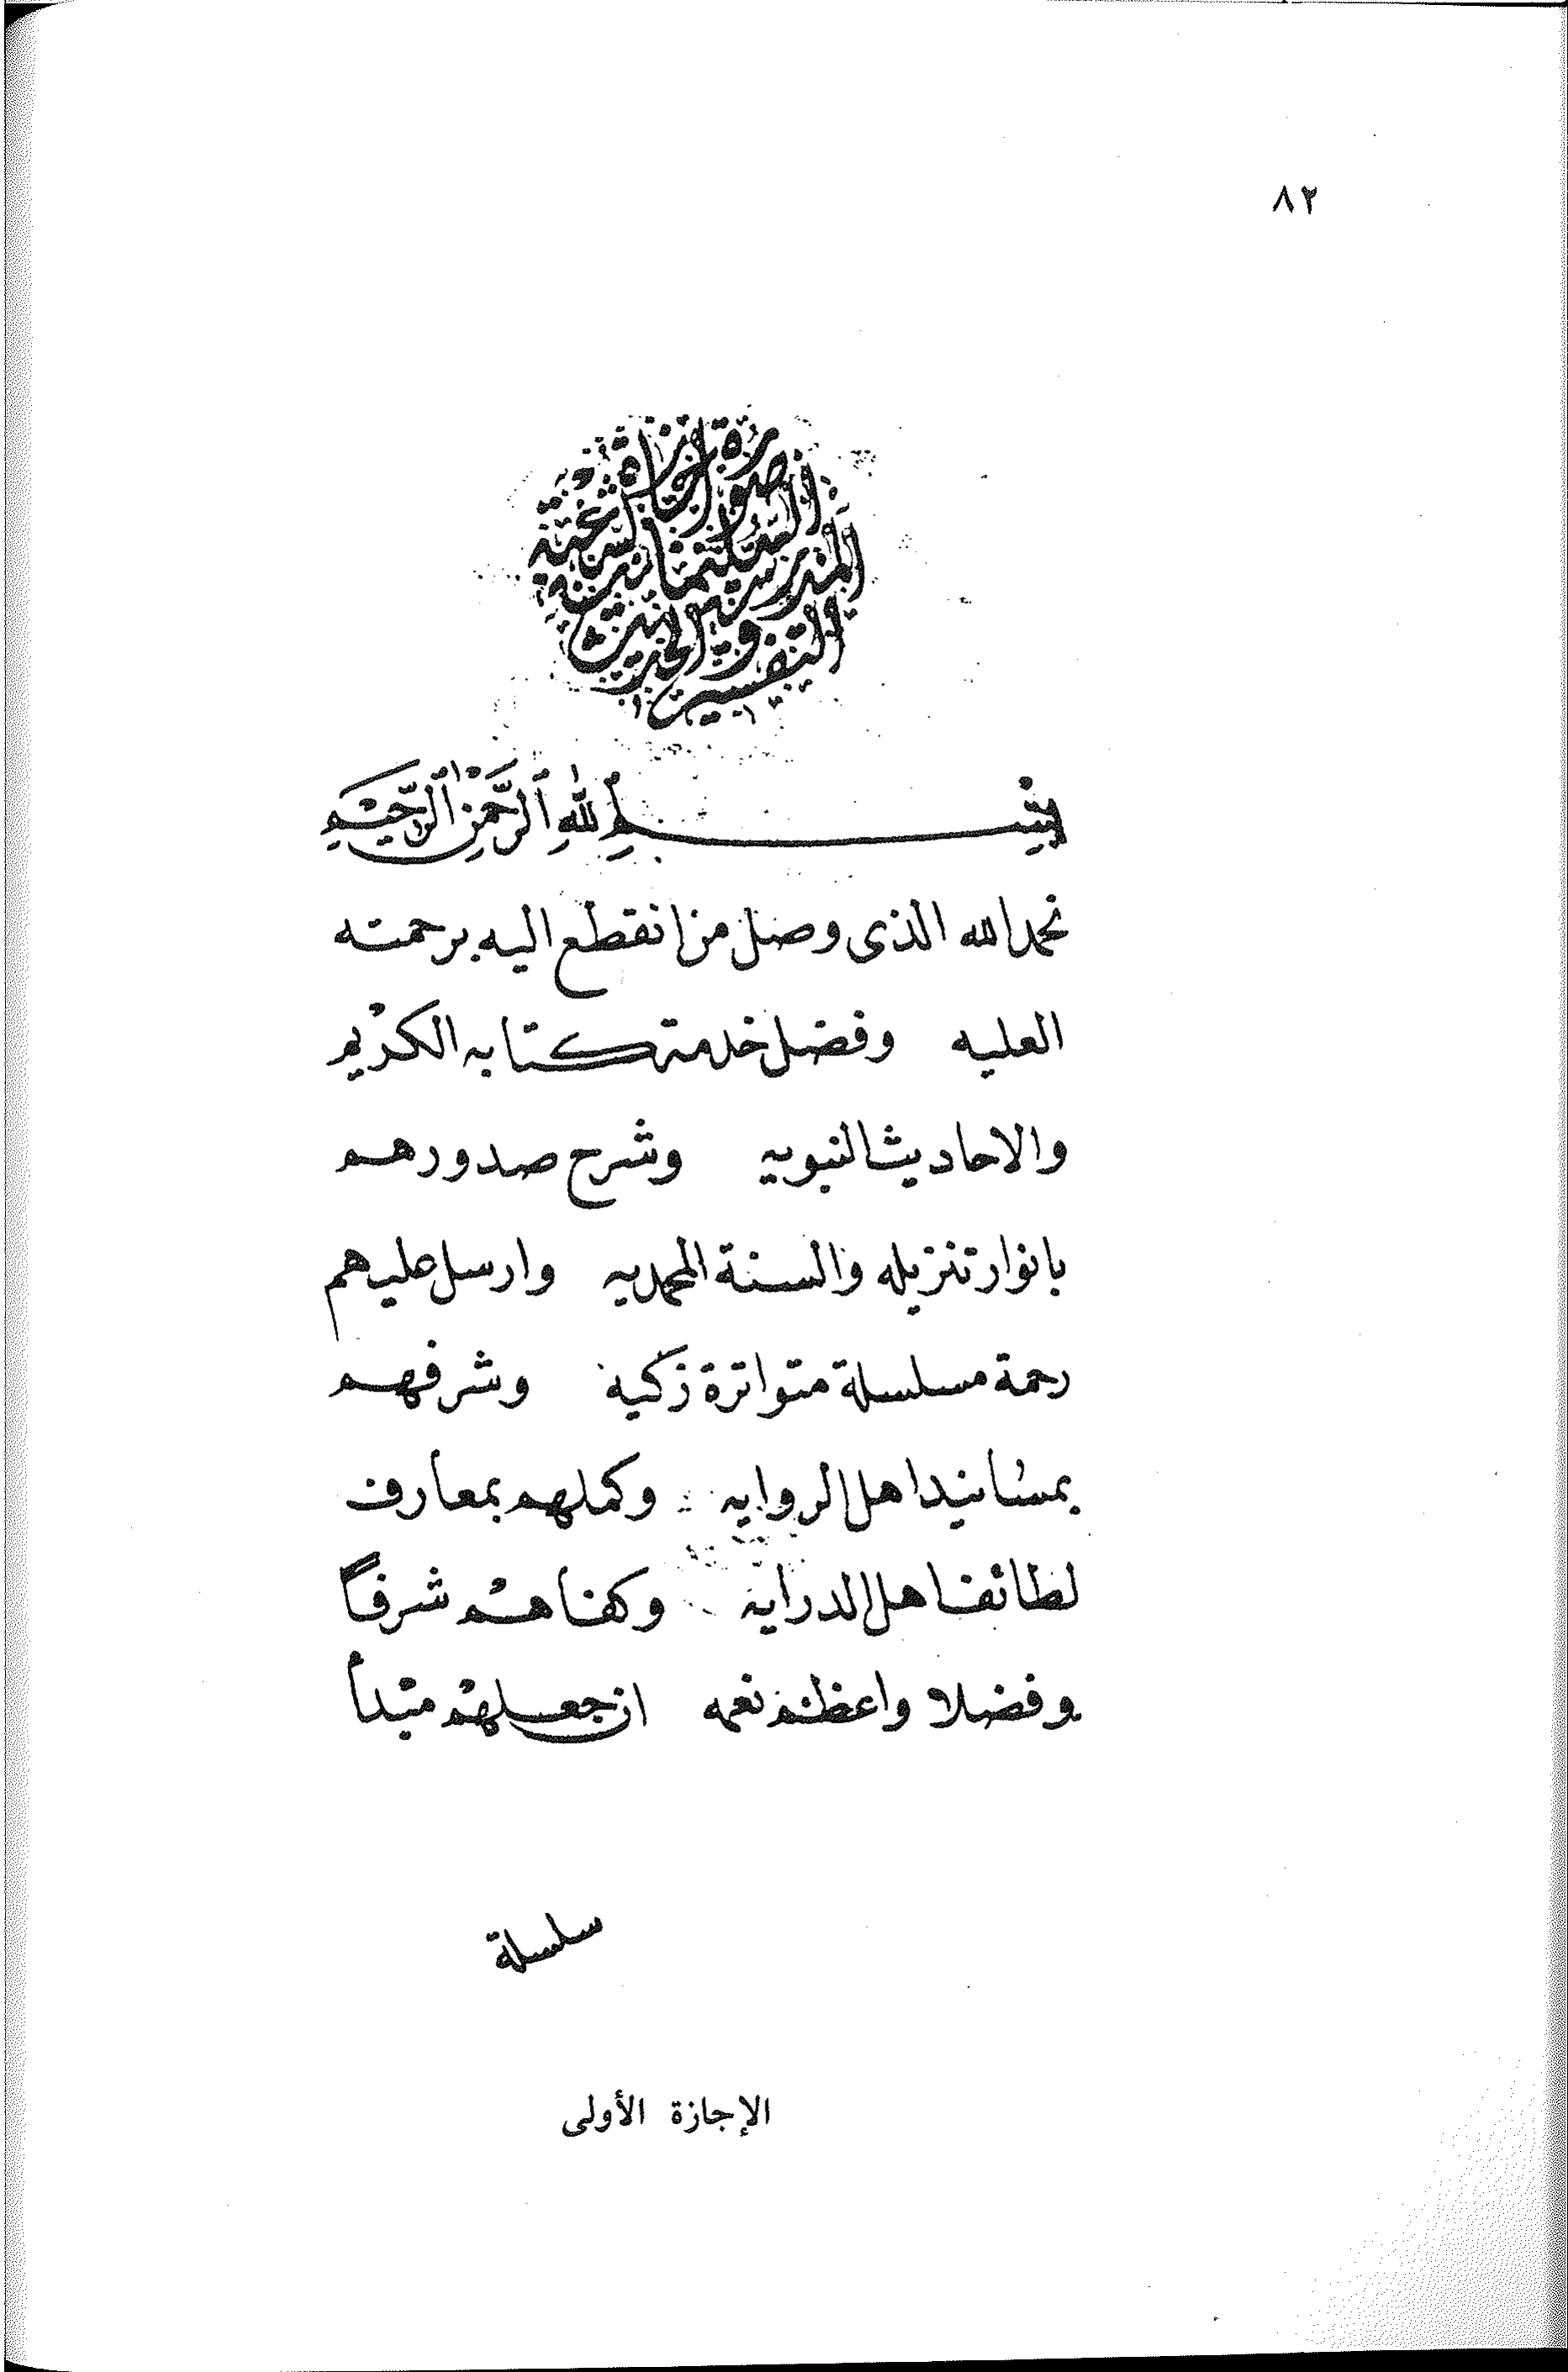 ٨٢
صورة اجازة
المدرس
التفسير و الحديث
بسم الله الرحمن الرحيم
نحمد الله الذى وصل من انقطع اليه برحمته
العليه وفضل خدمة كتابه الكريم
والاحاديث النبويه وشرح صدورهم
بانوار تنزيله والسنة المحمديه وارسل عليهم
رحمة مسلسلة متواترة زكيه وشرفهم
بمسانيد اهل الروايه وكملهم بمعارف
لطائف اهل الدرايه وكفاهم شرفاً
وفضلا واعظم نعمه ان جعلهم مبتدأ
سلسلة
الإجازة الأولى